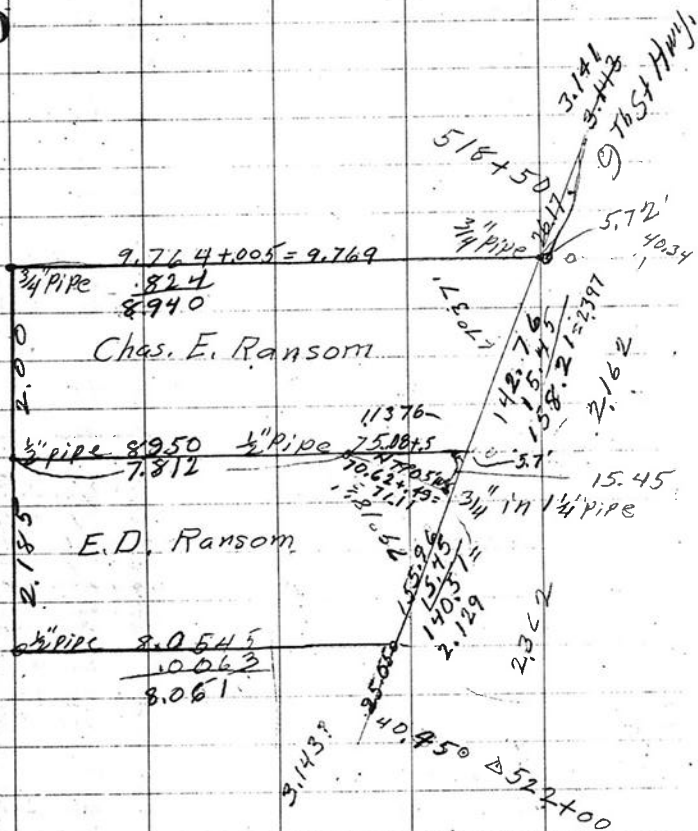 3.141
3.143
Th St Hwy.
518+50
26.17
5.72'
40.34
3/4" pipe
9.764+.005 = 9.769
3/4" Pipe
.824
8940
Chas. E. Ransom
2.00
142.76
15.45
158.21=2397
2.162
1.1376-
1/2" pipe 8950 1/2" Pipe 75.08+.5
7.812
5.7'
70.62+.49=
71.11
15.45
3/4" in 1 1/4" pipe
E.D. Ransom
2.185
155.96
15.45
140.51"
2.129
1/2" pipe 8.0545
.0063
8.061
25.05
3.143?
40.45 Δ522+00